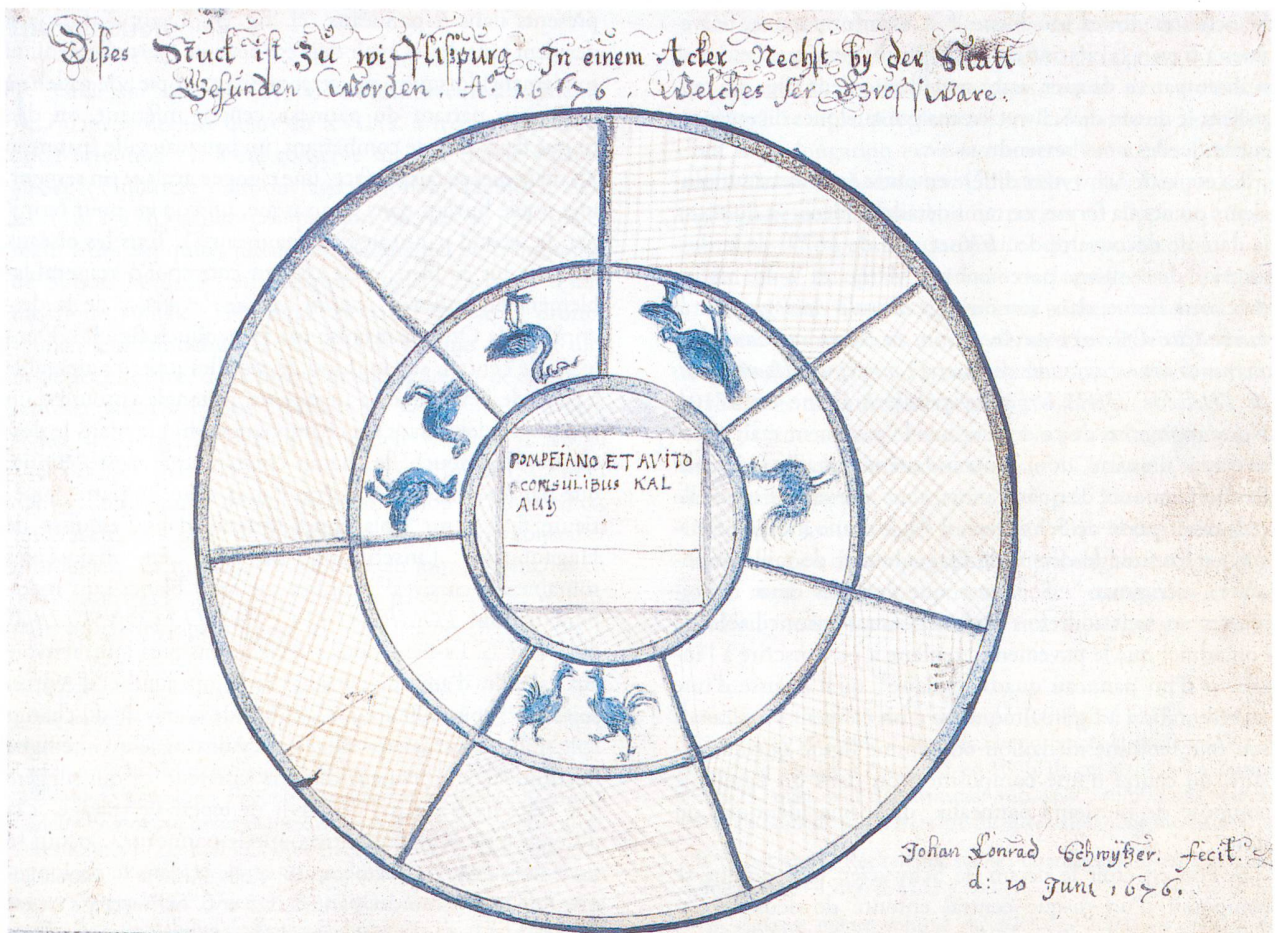 Dißes Stuck ist Zu wifflispurg In einem Acker Nechst by der Statt
Gefunden Worden. Aº 1676. Welches ser Groß Ware.
POMPEIANO ET AVITO
CONSULIBUS KAL
AUG
Johan Conrad Schwÿtzer. fecit.
d: 10 Juni 1676.